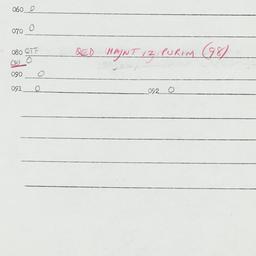 060 0
070 0
080 OTF RED HAJNT IZ PURIM (98)
081 0
090 0
091 0 092 0